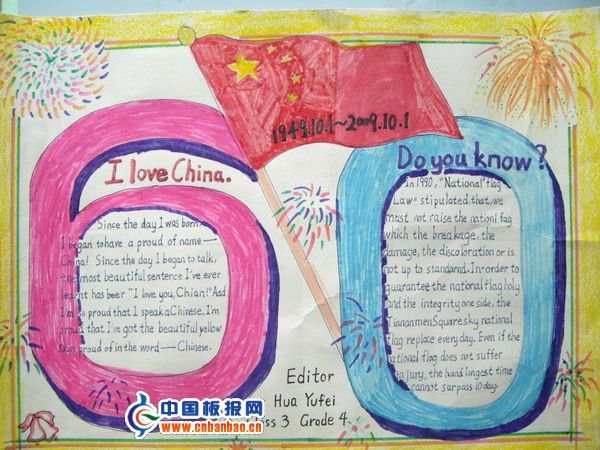 1949.10.1~2009.10.1
I love China.
Since the day I was born
I began to have a proud of name —
China! Since the day I began to talk,
the most beautiful sentence I've ever
learnt has beer "I love you, Chian!" Aad
I'm so proud that I speak Chinese. I'm
proud that I've got the beautiful yellow
skin proud of in the word — Chinese.
Do you know?
In 1990, "National" flag
Law" stipulated that, we
must not raise the nationl fag
which the breakage, the
damage, the discoloration or is
not up to standarnd. In order to
quarantee the national flag holy
and the integrity one side, the
Tiananmen Square sky national
flag replace every day. Even if the
national flag does not suffer
injury, the hand lingest time
cannot surpass 10 day.
Editor
Hua Yufei
ss 3 Grade 4
中国板报网
www.cnbanbao.cn